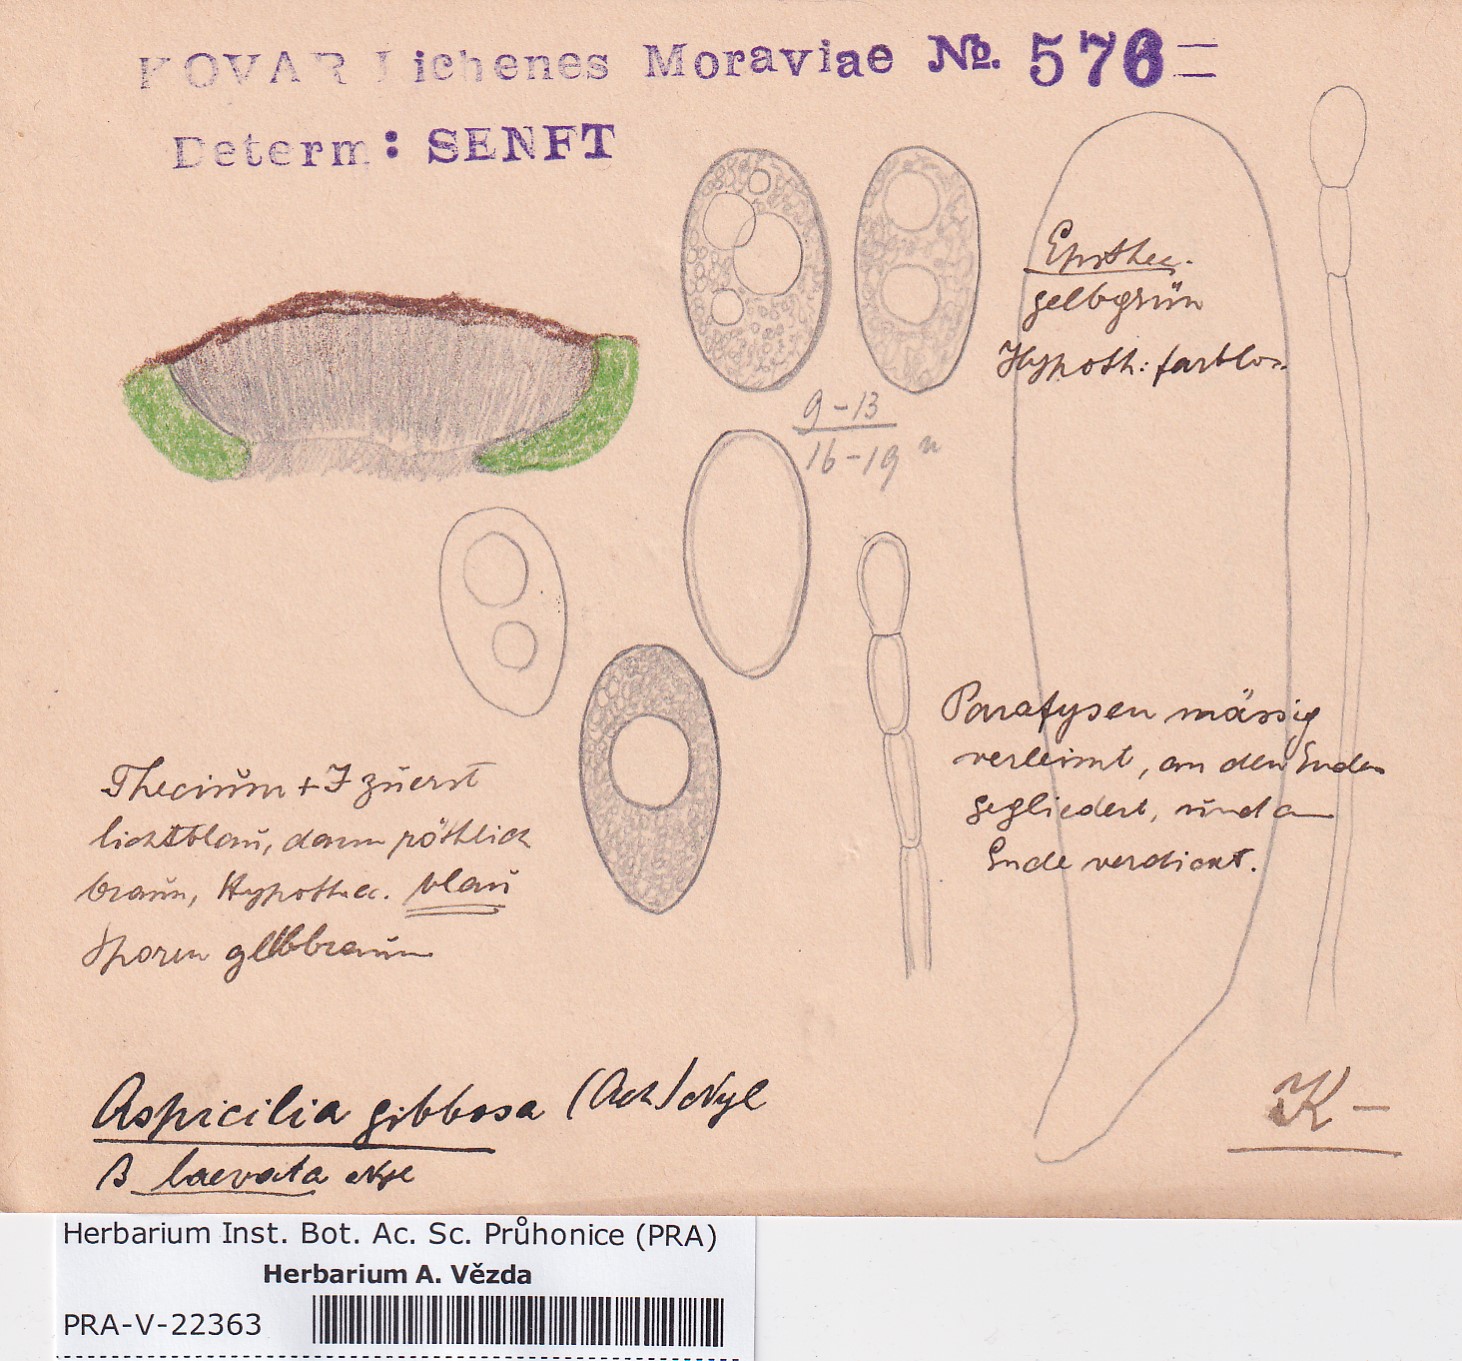 KOVAR Lichenes Moraviae No. 576=
Determ: SENFT
Epothec.
gelbgrün
Hypoth: farblos.
9-13
16-19 u
Parafysen mässig
verleimt, an den Enden
gegliedert, und am
Ende verdickt.
Thecium + J zuerst
lichtblau, dann röthlich
braun, Hypothec. blau
Sporen gelbbraun
Aspicilia gibbosa (Ach) Nyl
β laevata Nyl
K -
Herbarium Inst. Bot. Ac. Sc. Průhonice (PRA)
Herbarium A. Vězda
PRA-V-22363